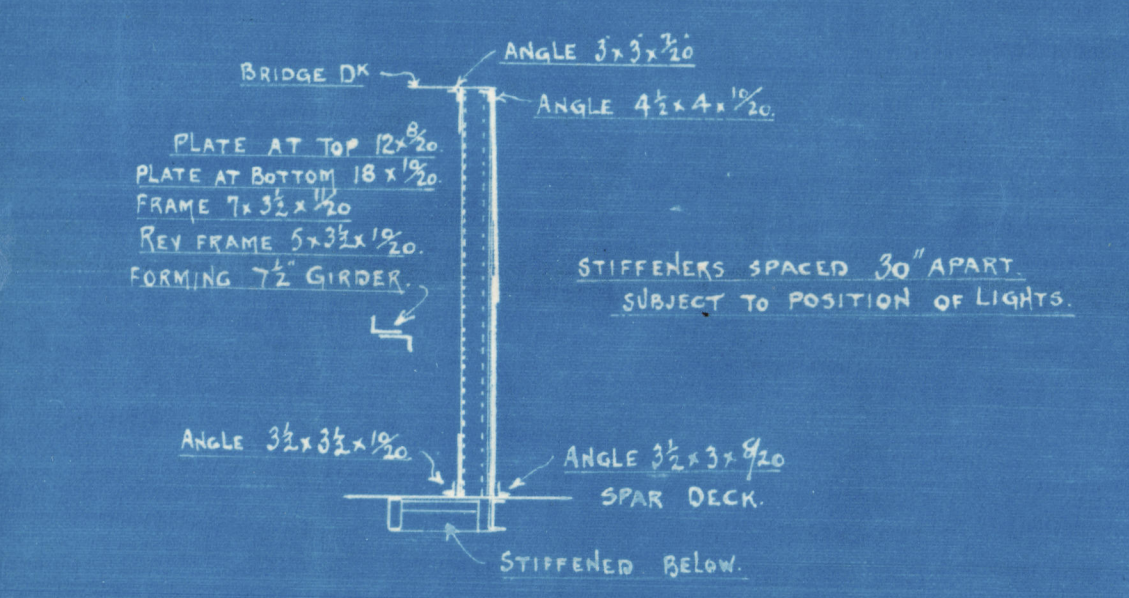 ANGLE 3" x 3" x 7/20"
BRIDGE DK
ANGLE 4½ x 4 x 10/20.
PLATE AT TOP 12 x 8/20.
PLATE AT BOTTOM 18 x 10/20.
FRAME 7 x 3½ x 11/20
REV FRAME 5 x 3½ x 10/20.
FORMING 7½" GIRDER.
STIFFENERS SPACED 30" APART.
SUBJECT TO POSITION OF LIGHTS.
ANGLE 3½ x 3½ x 10/20.
ANGLE 3½ x 3 x 8/20
SPAR DECK.
STIFFENED BELOW.